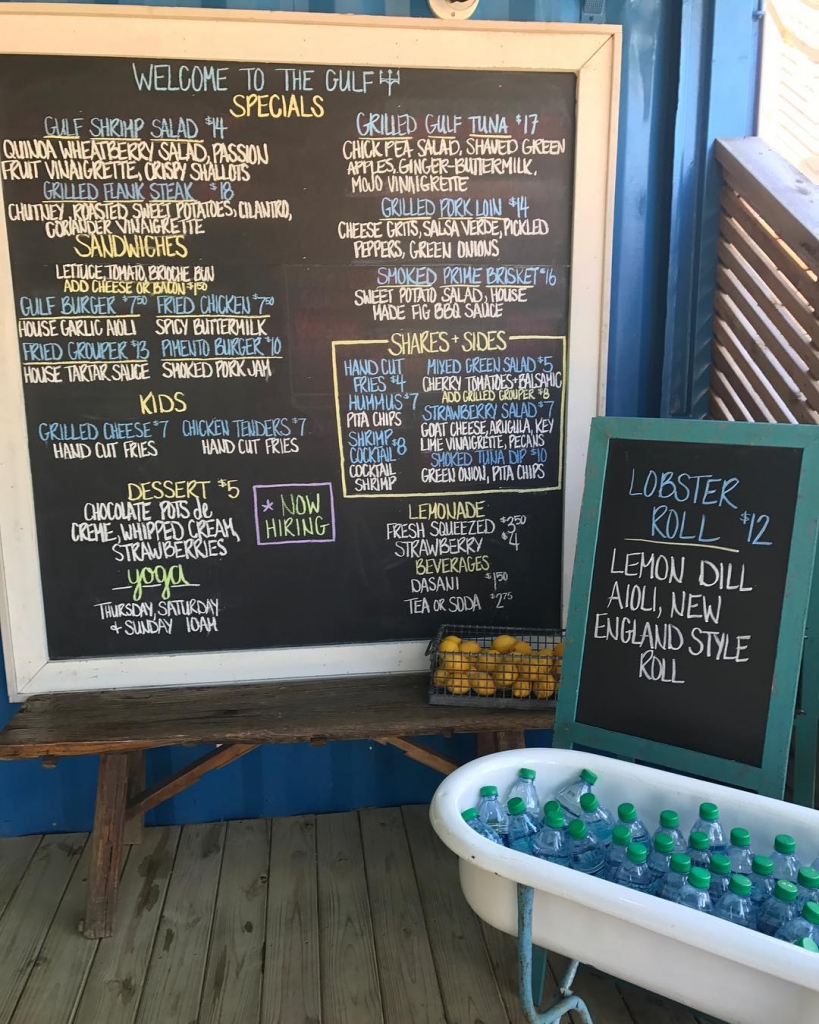 WELCOME TO THE GULF
SPECIALS
GULF SHRIMP SALAD $14
QUINOA WHEATBERRY SALAD, PASSION
FRUIT VINAIGRETTE, CRISPY SHALLOTS
GRILLED FLANK STEAK $18
CHUTNEY, ROASTED SWEET POTATOES, CILANTRO,
CORIANDER VINAIGRETTE
SANDWICHES
LETTUCE, TOMATO, BRIOCHE BUN
ADD CHEESE OR BACON $1.50
GULF BURGER $7.50 FRIED CHICKEN $7.50
HOUSE GARLIC AIOLI SPICY BUTTERMILK
FRIED GROUPER $13 PIMENTO BURGER $10
HOUSE TARTAR SAUCE SMOKED PORK JAM
KIDS
GRILLED CHEESE $7 CHICKEN TENDERS $7
HAND CUT FRIES HAND CUT FRIES
DESSERT $5
CHOCOLATE POTS de
CREME, WHIPPED CREAM,
STRAWBERRIES
* NOW
HIRING
yoga
THURSDAY, SATURDAY
+ SUNDAY 10AM
GRILLED GULF TUNA $17
CHICK PEA SALAD, SHAVED GREEN
APPLES, GINGER-BUTTERMILK,
MOJO VINAIGRETTE
GRILLED PORK LOIN $14
CHEESE GRITS, SALSA VERDE, PICKLED
PEPPERS, GREEN ONIONS
SMOKED PRIME BRISKET $16
SWEET POTATO SALAD, HOUSE
MADE FIG BBQ SAUCE
SHARES + SIDES
HAND CUT
FRIES $4
HUMMUS $7
PITA CHIPS
SHRIMP
COCKTAIL $8
COCKTAIL
SHRIMP
MIXED GREEN SALAD $5
CHERRY TOMATOES + BALSAMIC
ADD GRILLED GROUPER $8
STRAWBERRY SALAD $7
GOAT CHEESE, ARUGULA, KEY
LIME VINAIGRETTE, PECANS
SMOKED TUNA DIP $10
GREEN ONION, PITA CHIPS
LEMONADE
FRESH SQUEEZED $3.50
STRAWBERRY $4
BEVERAGES
DASANI $1.50
TEA OR SODA $2.75
LOBSTER
ROLL $12
LEMON DILL
AIOLI, NEW
ENGLAND STYLE
ROLL